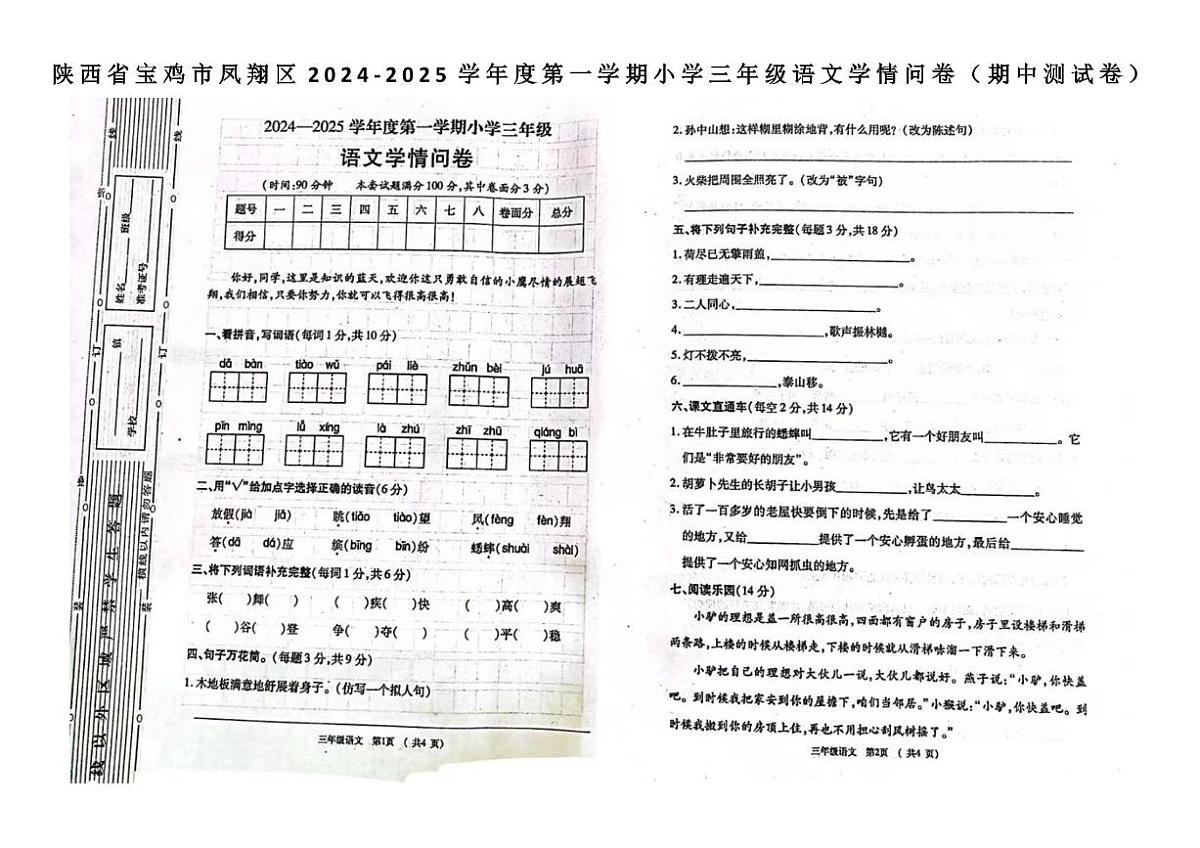 陕西省宝鸡市凤翔区2024-2025学年度第一学期小学三年级语文学情问卷（期中测试卷）
2024—2025学年度第一学期小学三年级
语文学情问卷
(时间:90分钟 本套试题满分100分,其中卷面分3分)
题号 一 二 三 四 五 六 七 八 卷面分 总分
得分
你好,同学,这里是知识的蓝天,欢迎你这只勇敢自信的小鹰尽情的展翅飞
翔,我们相信,只要你努力,你就可以飞得很高很高!
一、看拼音,写词语(每词1分,共10分)
dǎ bàn tiào wǔ pái liè zhǔn bèi jú huā
pīn mìng lǚ xíng là zhú zhī zhū qiáng bì
二、用“√”给加点字选择正确的读音(6分)
放假(jià jiǎ) 眺(tiǎo tiào)望 凤(fèng fèn)翔
答(dā dá)应 缤(bīng bīn)纷 蟋蟀(shuài shài)
三、将下列词语补充完整(每词1分,共6分)
张( )舞( ) ( )疾( )快 ( )高( )爽
( )谷( )登 争( )夺( ) ( )平( )稳
四、句子万花筒。(每题3分,共9分)
1.木地板满意地舒展着身子。(仿写一个拟人句)
三年级语文 第1页 (共4页)
线 以 外 区 域 严 禁 学 生 答 题
横线以内请勿答题
学校 镇
姓名 班级
准考证号
装 订 线
2.孙中山想:这样糊里糊涂地背,有什么用呢?(改为陈述句)
3.火柴把周围全照亮了。(改为“被”字句)
五、将下列句子补充完整(每题3分,共18分)
1.荷尽已无擎雨盖,。
2.有理走遍天下,。
3.二人同心,。
4.,歌声振林樾。
5.灯不拨不亮,。
6.,泰山移。
六、课文直通车(每空2分,共14分)
1.在牛肚子里旅行的蟋蟀叫,它有一个好朋友叫。它
们是“非常要好的朋友”。
2.胡萝卜先生的长胡子让小男孩,让鸟太太。
3.活了一百多岁的老屋快要倒下的时候,先是给了一个安心睡觉
的地方,又给提供了一个安心孵蛋的地方,最后给
提供了一个安心知网抓虫的地方。
七、阅读乐园(14分)
小驴的理想是盖一所很高很高,四面都有窗户的房子,房子里设楼梯和滑梯
两条路,上楼的时候从楼梯走,下楼的时候就从滑梯哧溜一下滑下来。
小驴把自己的理想对大伙儿一说,大伙儿都说好。燕子说:“小驴,你快盖
吧。到时候我把家安到你的屋檐下,咱们当邻居。”小猴说:“小驴,你快盖吧。到
时候我搬到你的房顶上住,再也不用担心刮风树摇了。”
三年级语文 第2页 (共4页)